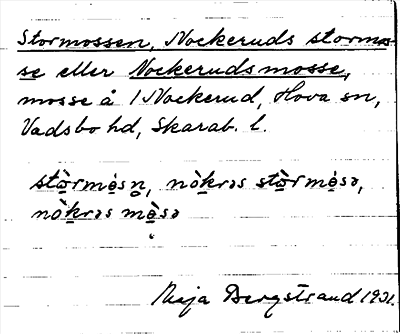 Stormossen, Nockeruds stormos-
se eller Nockerudsmosse,
mosse å 1 Nockerud, Hova sn,
Vadsbo hd, Skarab. l.
stò̱rmȯ̱sn̥, nòḵrəs stò̱rmȯ̱sə,
nòḵrəs mò̱sə
Maja Bergstrand 1931.